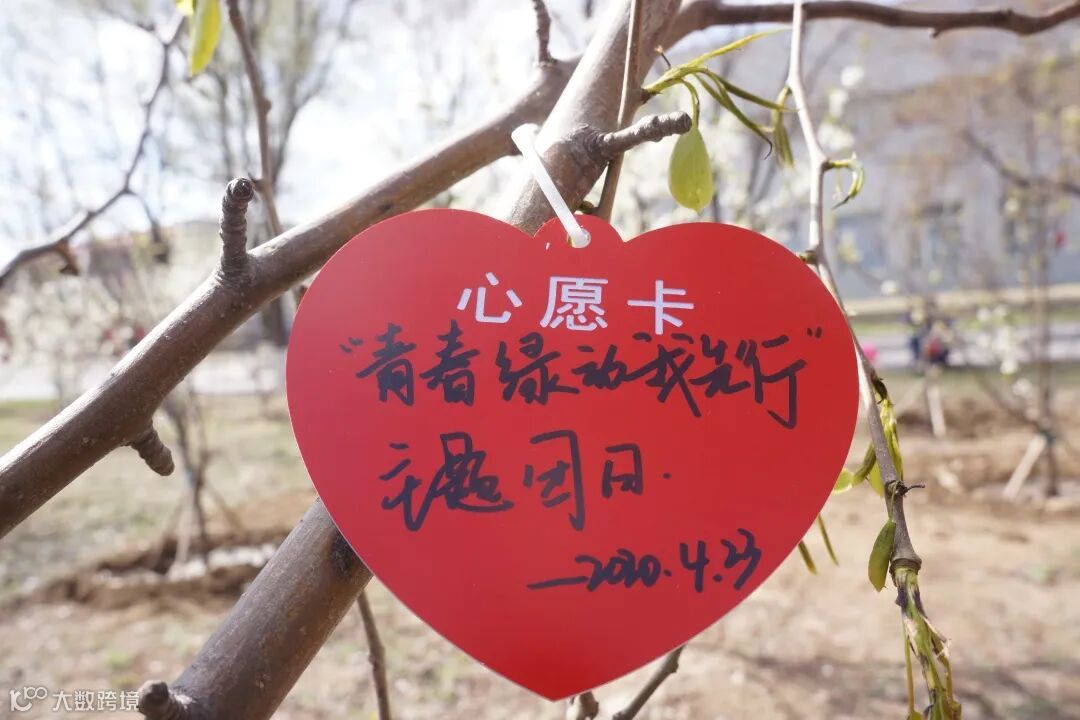 心愿卡
“青春绿动我先行”
主题团日.
—2020.4.23
大数跨境